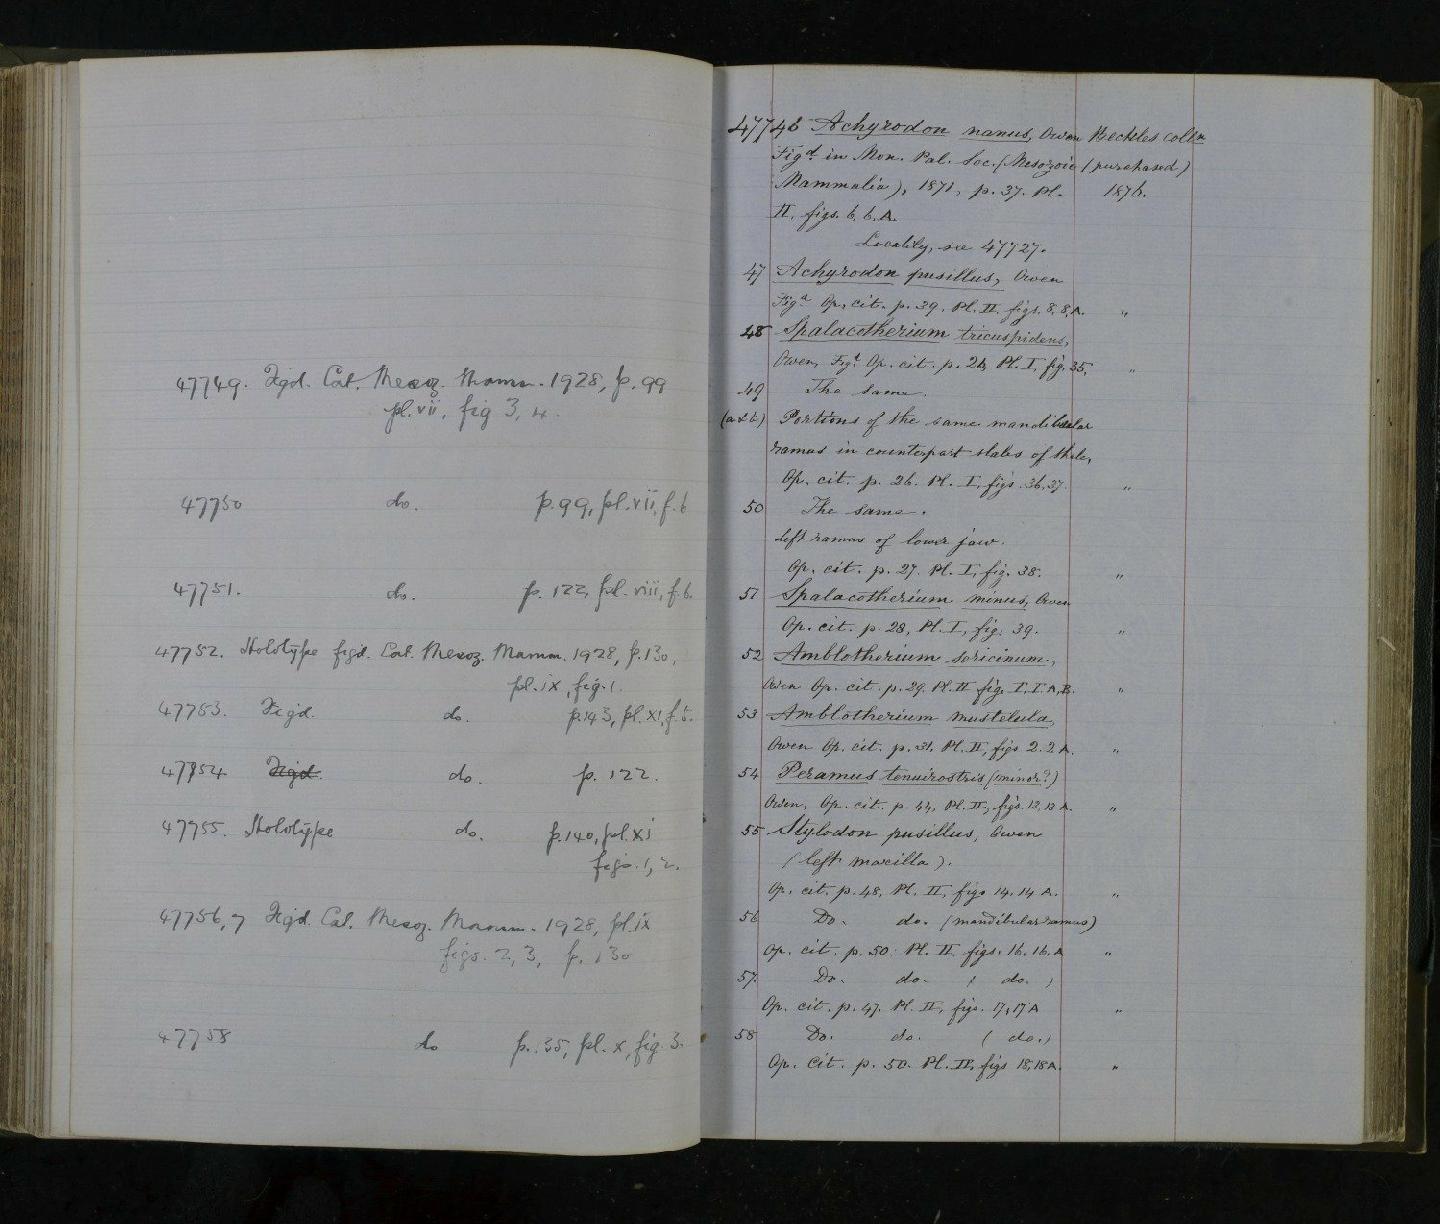 47749. Figd. Cat. Mesoz. Mamm. 1928, p. 99
pl. vii, fig 3, 4.
47750 do. p. 99, pl. vii, f. 6
47751. do. p. 122, pl. viii, f. 6.
47752. Holotype figd. Cat. Mesoz. Mamm. 1928, p. 130,
pl. ix, fig. 1.
47753. Figd. do. p. 143, pl. xi, f. 5.
47754 Figd. do. p. 122.
47755. Holotype do. p. 140, pl. xi
figs. 1, 2.
47756, 7 Figd Cat. Mesoz. Mamm. 1928, pl. ix
figs. 2, 3, p. 130
47758 do p. 135, pl. x, fig. 3.
47746 Achyrodon nanus, Owen Beckles Colln
Figd. in Mon. Pal. Soc. (Mesozoic (purchased)
Mammalia), 1871, p. 37. Pl. 1876.
II, figs. 6, 6. A.
Locality, see 47727.
47 Achyrodon pusillus, Owen
Figd. Op. cit. p. 39, Pl. II figs. 8, 8, A. "
48 Spalacotherium tricuspidens,
Owen, Figd. Op. cit. p. 26, Pl. I, fig. 35, "
49 The same.
(a & b) Portions of the same mandibular
ramus in counterpart slabs of shale,
Op. cit. p. 26. Pl. I, figs. 36, 37. "
50 The same.
Left ramus of lower jaw.
Op. cit. p. 27. Pl. I, fig. 38. "
51 Spalacotherium minus, Owen
Op. cit. p. 28, Pl. I, fig. 39. "
52 Amblotherium soricinum,
Owen Op. cit. p. 29. Pl. II fig. I, I. A, B. "
53 Amblotherium mustelula,
Owen Op. cit. p. 31. Pl. II, figs 2. 2 A. "
54 Peramus tenuirostris (minor?)
Owen, Op. cit. p. 44, Pl. II, figs. 12, 12 A. "
55 Stylodon pusillus, Owen
(left maxilla).
Op. cit. p. 48, Pl. II, figs 14, 14 A. "
56 Do. do. (mandibular ramus)
Op. cit. p. 50. Pl. II figs. 16. 16. A "
57. Do. do. ( do. )
Op. cit. p. 47. Pl. II, figs. 17, 17 A "
58 Do. do. ( do. )
Op. cit. p. 50. Pl. II, figs 18, 18 A. "